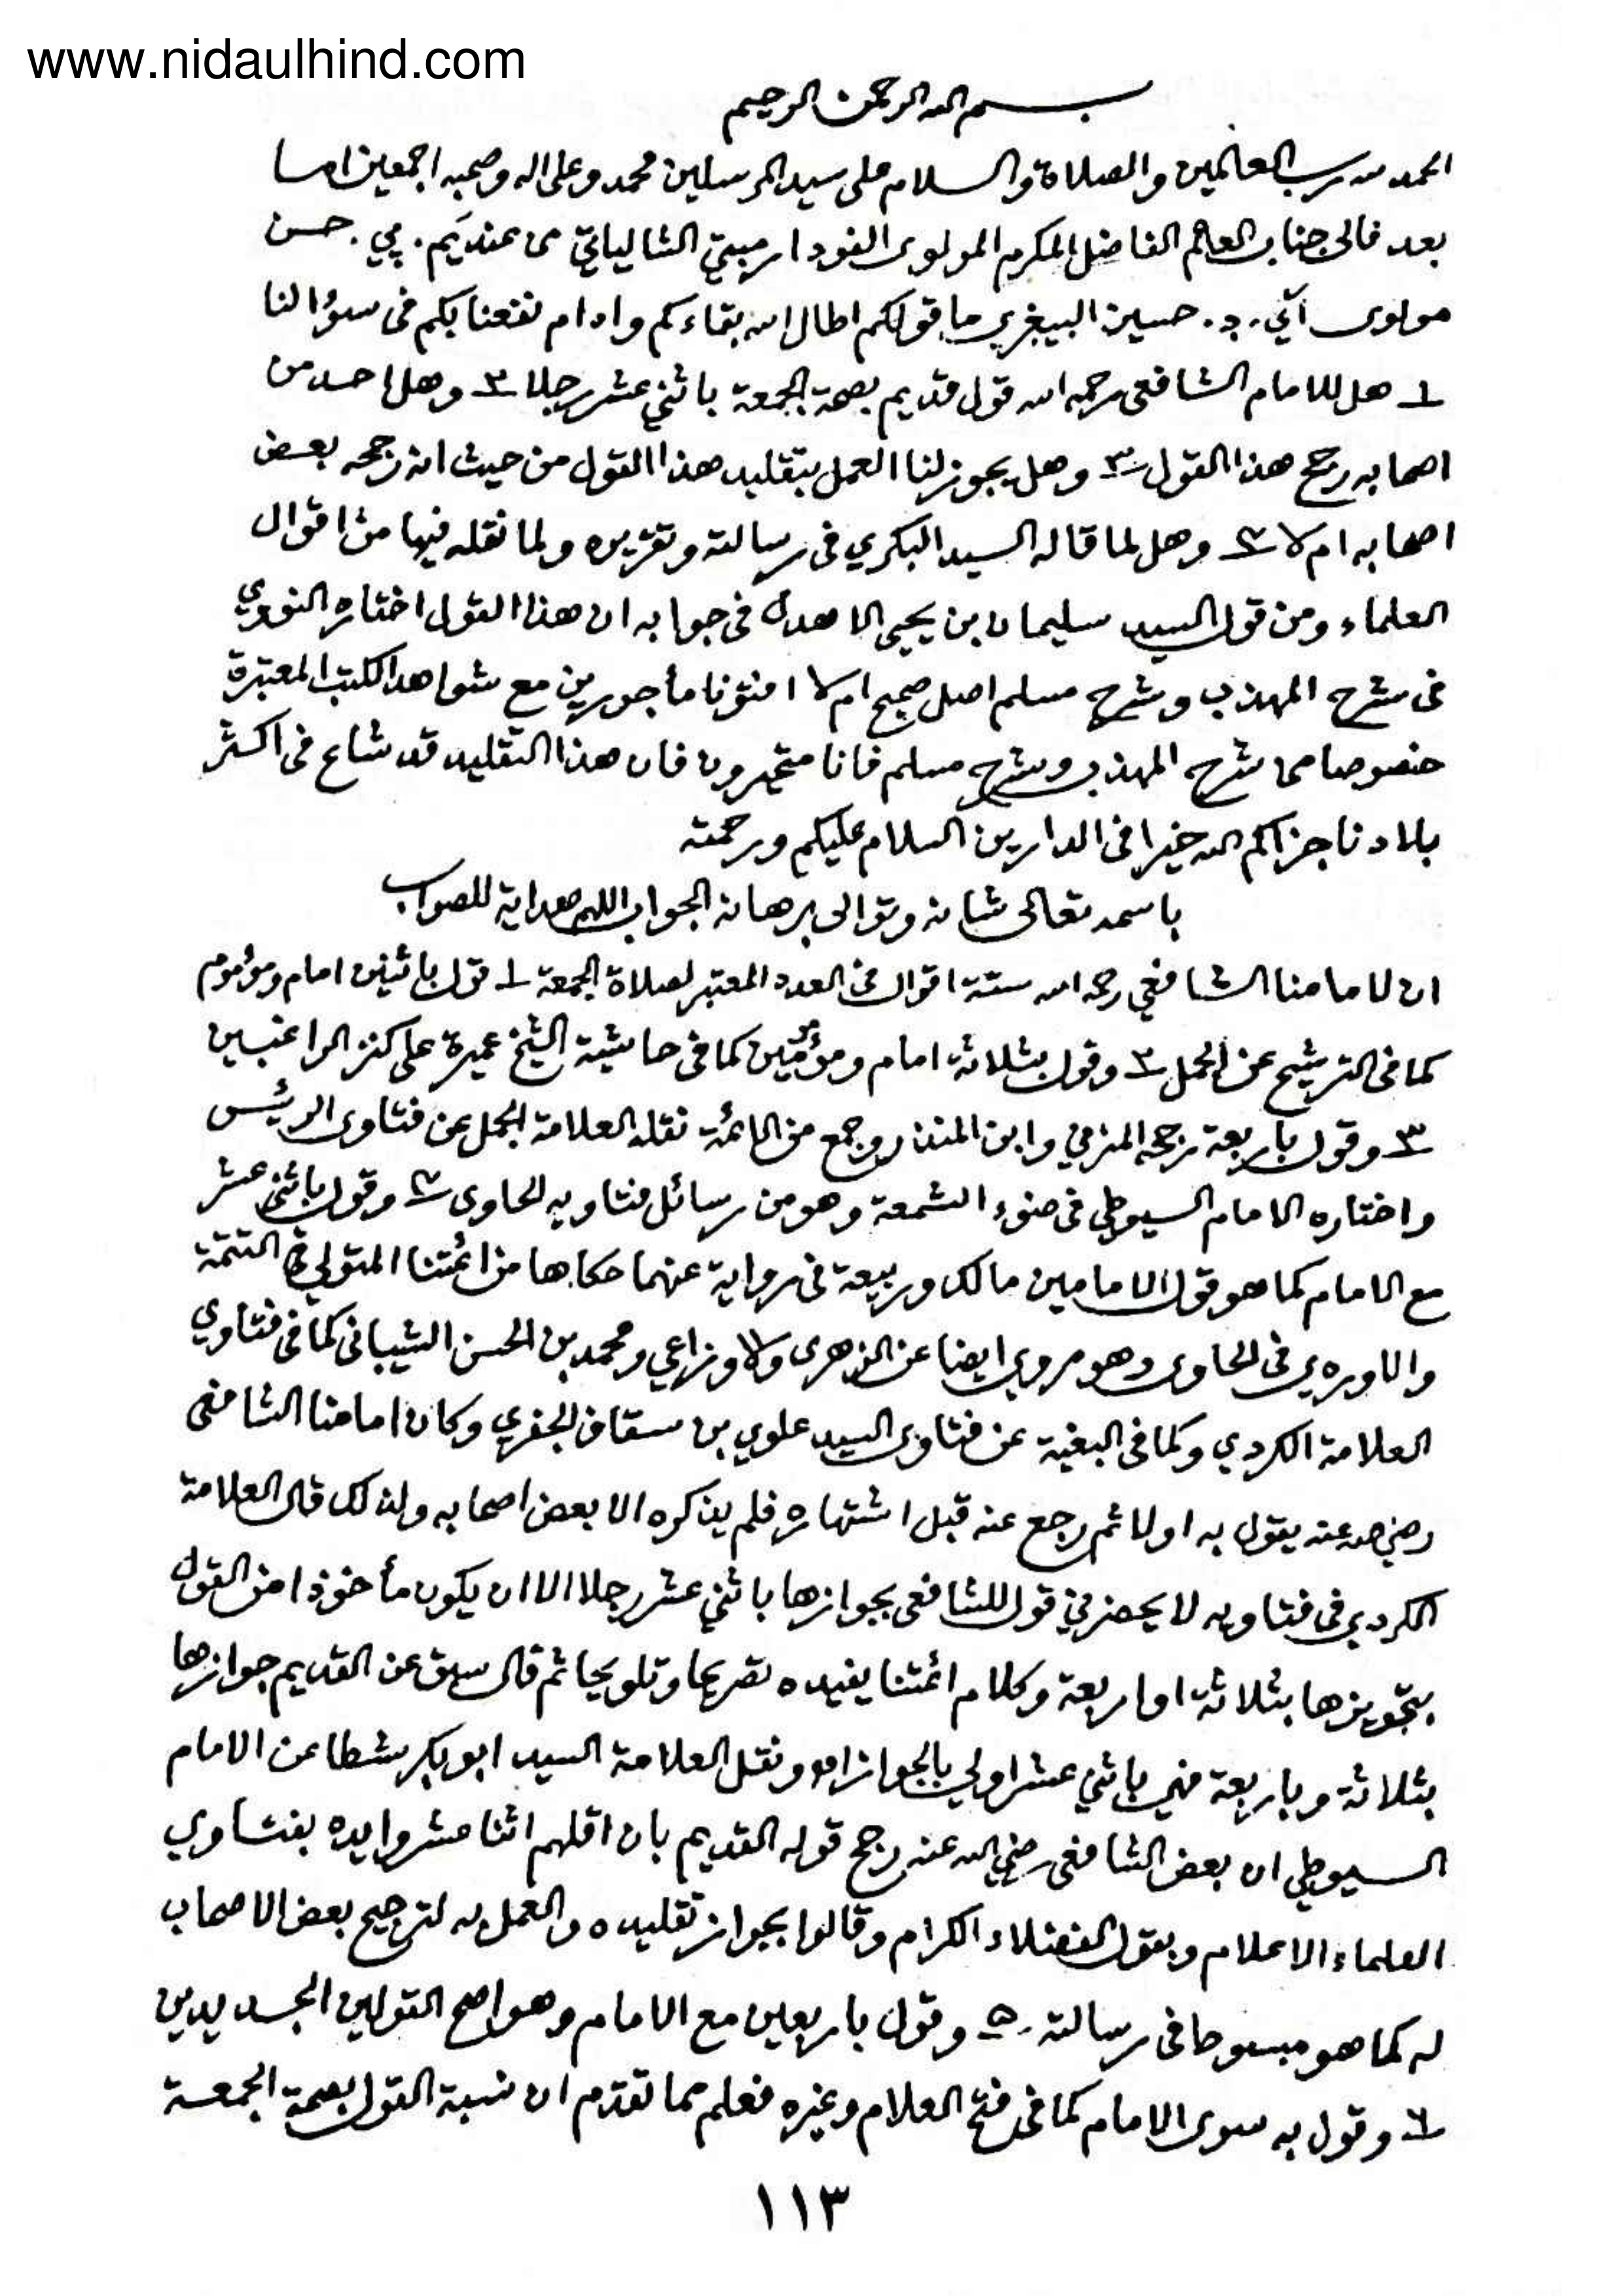 www.nidaulhind.com
بسم الله الرحمن الرحيم
الحمد لله رب العالمين والصلاة والسلام على سيد المرسلين محمد وعلى اله وصحبه اجمعين اما
بعد فالى جناب العالم الفاضل المكرم المولوى الشالياتي من عندكم. پي. حسن
مولوى آئي. د. حسين ما قولكم اطال الله بقاءكم وادام نفعنا بكم فى سؤالنا
١ هل للامام الشافعى رحمه الله قول قديم بصحة الجمعة باثني عشر رجلا ٢ وهل احد من
اصحابه رجح هذا القول ٣ وهل يجوز لنا العمل بتقليد هذا القول من حيث انه رجحه بعض
اصحابه ام لا ٤ وهل لما قاله السيد البكري فى رسالته وتقريره ولما نقله فيها من اقوال
العلماء ومن قول السيد سليمان بن يحيى الاهدل فى جوابه ان هذا القول اختاره النووي
فى شرح المهذب وشرح مسلم اصل صحيح ام لا افتؤنا مأجورين مع شواهد الكتب المعتبرة
خصوصا من شرح المهذب وشرح مسلم فانا متحيرون فان هذا التقليد قد شاع فى اكثر
بلادنا جزاكم الله خيرا فى الدارين السلام عليكم ورحمته
باسمه تعالى شانه وتوالى برهانه الجواب اللهم هداية للصواب
ان لامامنا الشافعي رحمه الله ستة اقوال فى العدد المعتبر لصلاة الجمعة ١ قول باثنين امام ومؤموم
كما فى الترشيح عن الجمل ٢ وقول بثلاثة امام ومؤمومين كما فى حاشية الشيخ عميرة على كنز الراغبين
٣ وقول باربعة رجحه المزني وابن المنذر وجمع من الائمة نقله العلامة الجمل عن فتاوى الرئيس
واختاره الامام السيوطي فى ضوء الشمعة وهو من رسائل فتاويه الحاوى ٤ وقول باثني عشر
مع الامام كما هو قول الامامين مالك وربيعة فى رواية عنهما حكاها من ائمتنا المتولي في التتمة
والاوردي فى الحاوى وهو مروي ايضا عن الزهرى والاوزاعي ومحمد بن الحسن الشيبانى كما فى فتاوي
العلامة الكردي وكما فى البغية عن فتاوى السيد علوي بن سقاف الجفري وكان امامنا الشافعى
رضي الله عنه يقول به اولا ثم رجع عنه قبل اشتهاره فلم يذكره الا بعض اصحابه ولذلك قال العلامة
الكردي فى فتاويه لا يحضرني قول للشافعى بجوازها باثني عشر رجلا الا ان يكون مأخوذا من القول
بتجويزها بثلاثة او اربعة وكلام ائمتنا يفيده تصريحا وتلويحا ثم قال سبق عن القديم جوازها
بثلاثة وباربعة فهي باثني عشر اولي بالجواز اه ونقل العلامة السيد ابو بكر شطا عن الامام
السيوطي ان بعض الشافعى رضي الله عنه رجح قوله القديم بان اقلهم اثنا عشر وايده بفتاوي
العلماء الاعلام وبقول الفضلاء الكرام وقالوا بجواز تقليده والعمل به لترجيح بعض الاصحاب
له كما هو مبسوطا فى رسالته ٥ وقول باربعين مع الامام وهو اصح القولين الجديدين
٦ وقول به سوى الامام كما فى فتح العلام وغيره فعلم مما تقدم ان نسبة القول بصحة الجمعة
١١٣